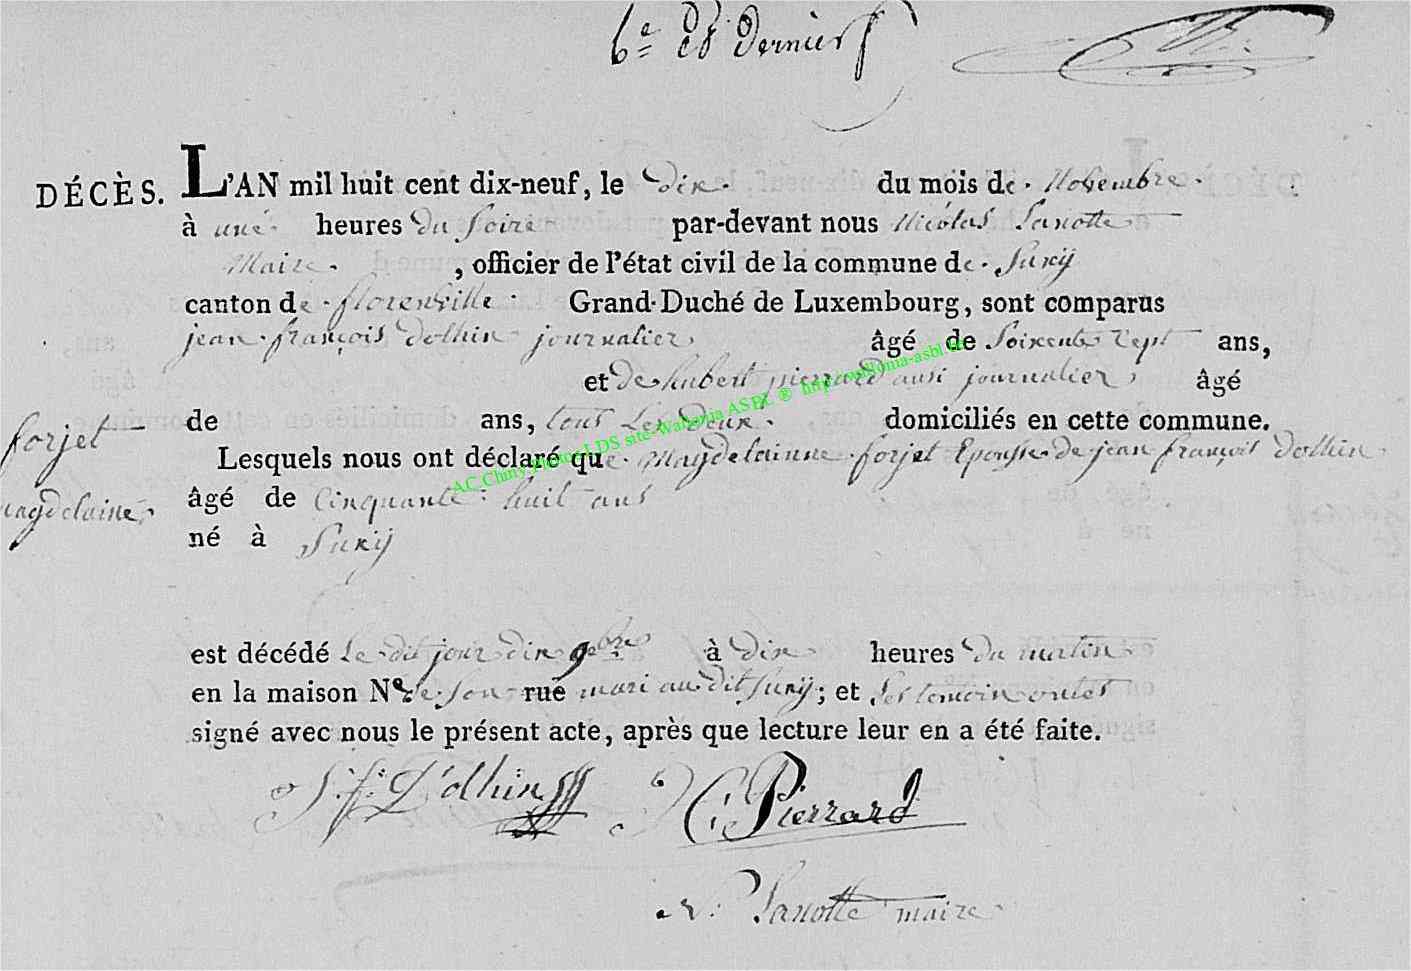 6e et dernier
DÉCÈS. L'AN mil huit cent dix-neuf, le dix du mois de Novembre
à une heures du Soire par-devant nous Nicolas Lanotte
Maire, officier de l'état civil de la commune de Suxÿ
canton de florenville Grand-Duché de Luxembourg, sont comparus
jean françois dolhin journalier âgé de Soixente Sept ans,
et de hubert pierrard ausi journalier âgé
de ans, tous Les deux domiciliés en cette commune.
forjet
Lesquels nous ont déclaré que Magdelainne forjet Epouse de jean françois dolhin
magdelaine
âgé de Cinquante huit ans
né à Suxÿ
est décédé Le dit jour dix 9bre à dix heures du matin
en la maison No de Son rue mari au dit Suxÿ; et Les temoin ontes
signé avec nous le présent acte, après que lecture leur en a été faite.
J: f: D'olhin H Pierrard
N: Lanotte maire
AC Chiny Photos LDS site-Wallonia ASBL ® http://wallonia-asbl.be